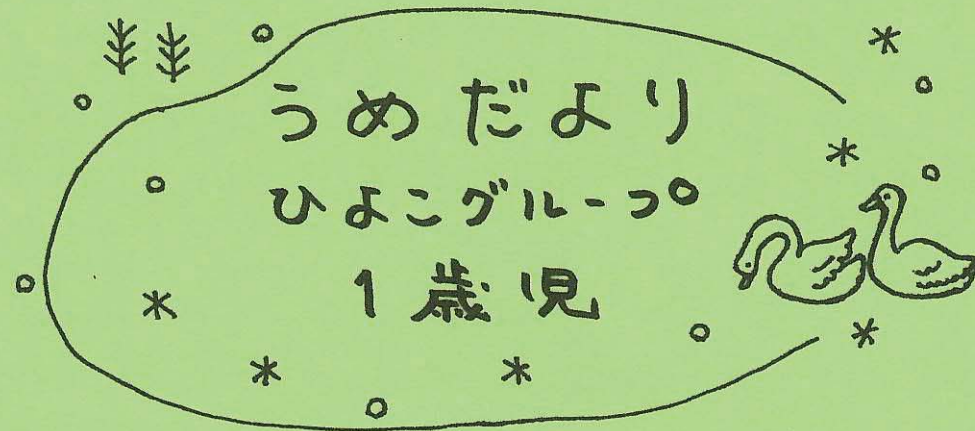 うめだより
ひよこグループ
1歳児